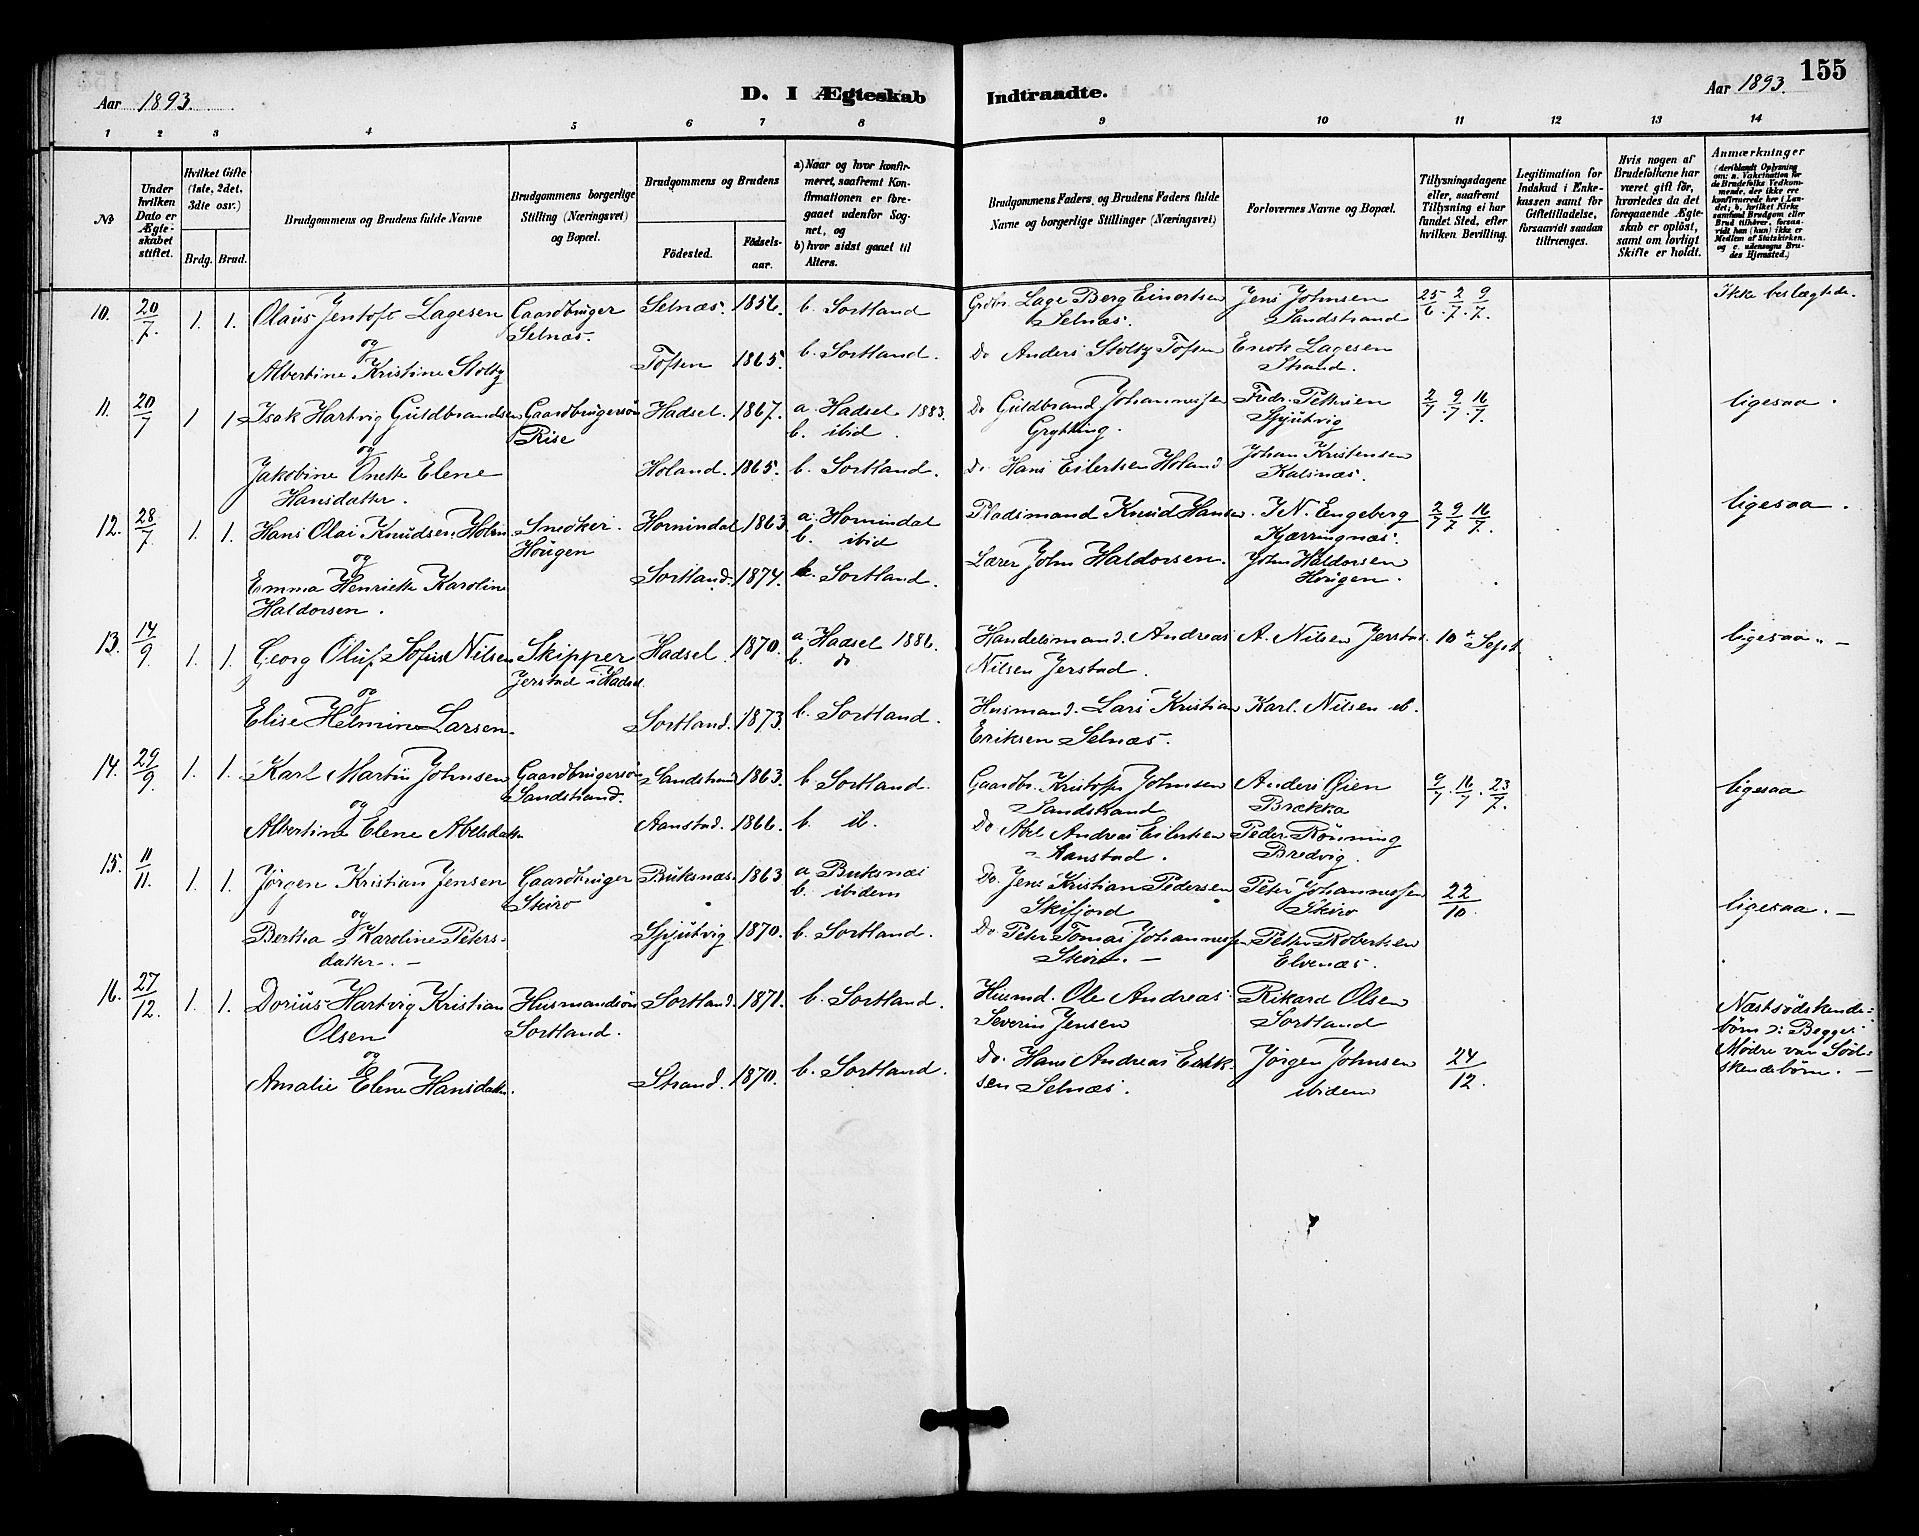 155
Aar 1893.
D. I Ægteskab Indtraadte.
Aar 1893.
1 2 3 4 5 6 7 8 9 10 11 12 13 14
№
Under hvilken Dato er Ægteskabet stiftet.
Hvilket Gifte (1ste, 2det, 3die osv.)
Brdg. Brud.
Brudgommens og Brudens fulde Navne
Brudgommens borgerlige Stilling (Næringsvei) og Bopæl.
Brudgommens og Brudens
Födested.
Födselsaar.
a) Naar og hvor konfirmeret, saafremt Konfirmationen er foregaaet udenfor Sognet, og
b) hvor sidst gaaet til Alters.
Brudgommens Faders, og Brudens Faders fulde Navne og borgerlige Stillinger (Næringsvei)
Forlovernes Navne og Bopæl.
Tillysningsdagene eller, saafremt Tillysning ei har fundet Sted, efter hvilken Bevilling.
Legitimation for Indskud i Enkekassen samt for Giftetilladelse, forsaavidt saadan tiltrænges.
Hvis nogen af Brudefolkene har været gift för, hvorledes da det foregaaende Ægteskab er oplöst, samt om lovligt Skifte er holdt.
Anmærkninger
(deriblandt Oplysning om: a. Vakcination for de Brudefolks Vedkommende, der ikke ere konfirmerede her i Landet, b. hvilket Kirkesamfund Brudgom eller Brud tilhörer, forsaavidt han (hun) ikke er Medlem af Statskirken, og c. udensogns Brudes Hjemsted.)
10. 20/7. 1. 1. Olaus Jentoft Lagesen Gaardbruger Selnæs. 1856. b. Sortland Grdbr. Lage Berg Einertsen Jens Johnsen 25/6. 2/7. 9/7. Ikke beslægtede.
Selnæs. Selnæs. Sandstrand
og
Albertine Kristine Stolty Toften 1865. b. Sortland. Do Anders Stolty Toften Enok Lagesen
Strand.
11. 20/7 1 1 Isak Hartvig Guldbrandsen Gaardbrugersøn Hadsel. 1867. a. Hadsel 1883. Do Guldbrand Johannessen Fredr. Pettersen 2/7. 9/7. 16/7. ligesaa.
Rise b. ibid. Grytting. Spjutvig
og
Jakobine Onette Elene Holand. 1865. b. Sortland. Do Hans Eilertsen Holand Johan Kristensen
Hansdatter. Kalsnæs.
12. 28/7 1. 1. Hans Olai Knudsen Holm Snedker. Hornindal 1863. a. Hornindal Pladsmand Knud Hansen. I. N. Engeberg 2/7 9/7. 16/7. ligesaa.
Hougen b. ibid Kjærringnæs.
og
Emma Henriette Karoline Sortland. 1874. b. Sortland. Lærer John Haldorsen. John Haldorsen
Haldorsen. Hougen.
13. 14/9. 1. 1. Georg Oluf Sofus Nilsen Skipper Hadsel. 1870. a. Hadsel 1886. Handelsmand. Andreas A. Nilsen Jerstad. 10de Sept. ligesaa. —
Jerstad i Hadsel. b. do Nilsen Jerstad.
og
Elise Helmine Larsen. Sortland. 1873. b. Sortland. Husmand. Lars Kristian Karl. Nilsen ib.
Eriksen Selnæs.
14. 29/9. 1. 1. Karl Martin Johnsen Gaardbrugersøn Sandstrand 1863. b. Sortland. Gaardbr. Kristofer Johnsen Anders Øien 9/7. 16/7. 23/7. ligesaa
Sandstrand. Sandstrand Brækka
og
Albertine Elene Abelsdatter Aanstad. 1866. b. ib. Do Abel Andreas Eilertsen Peder Rönning
Aanstad. Bredvig.
15. 11/11. 1. 1. Jørgen Kristian Jensen Gaardbruger Buksnæs. 1863 a Buksnæs Do. Jens Kristian Pedersen Peter Johannessen 22/10. ligesaa. —
Skiro b. ibidem Skifjord Skiro
og
Bertha Karoline Peters- Spjutvig 1870. b. Sortland. Do Peter Tomas Johannessen Petter Robertsen
datter. — Skiro. — Elvenæs.
16. 27/12. 1. 1. Dorius Hartvig Kristian Husmandsøn Sortland. 1871. b. Sortland. Husmd. Ole Andreas Rikard Olsen Næstsødskende-
Olsen Sortland. Severin Jensen Sortland børn ɔ: Begges
og
Mødre var Söd-
Amalie Elene Hansdatter. Strand. 1870. b. Sortland. Do. Hans Andreas Erik- Jørgen Johnsen 24/12. skendebørn. —
sen Selnæs. ibidem